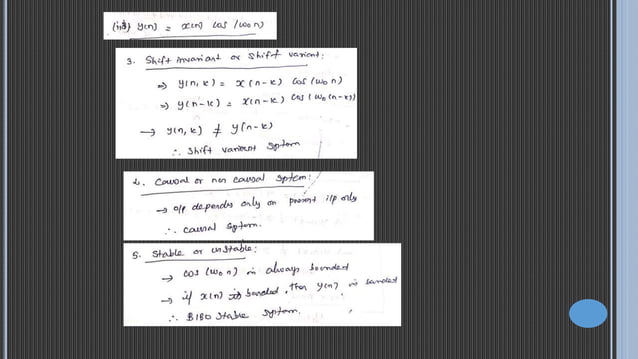 (iii) y(n) = x(n) cos (ω₀n)
3. Shift invariant or Shift varient:
⇒ y(n, k) = x(n-k) cos (ω₀n)
⇒ y(n-k) = x(n-k) cos (ω₀(n-k))
→ y(n, k) ≠ y(n-k)
∴ Shift varient System
4. Causal or non causal System:
→ o/p depends only on present i/p only
∴ causal System.
5. Stable or unstable:
→ cos (ω₀n) is always bounded
→ if x(n) is bounded, then y(n) is bounded
∴ BIBO Stable System.